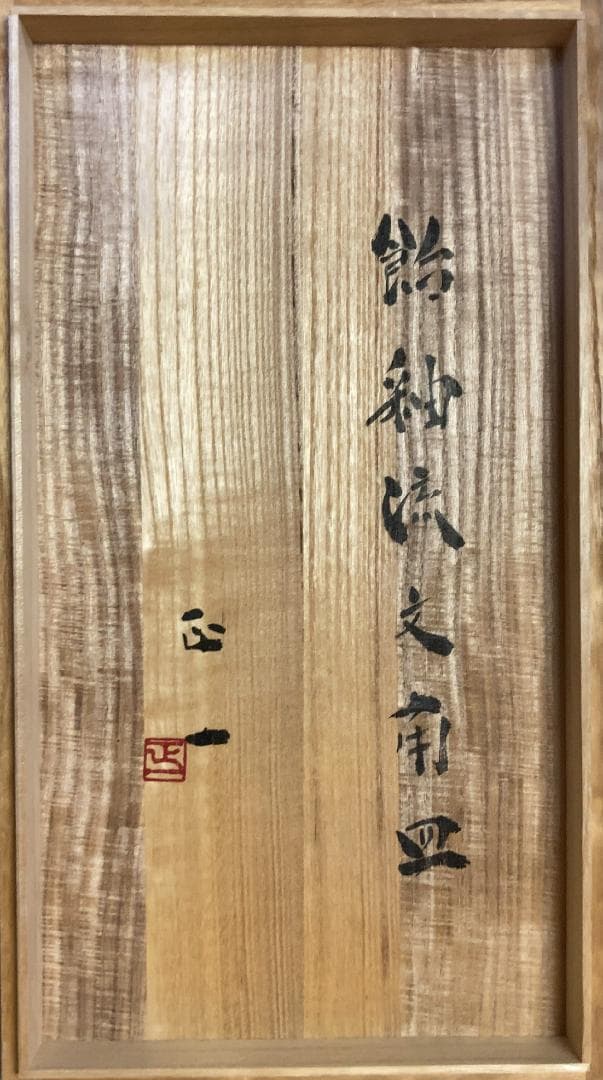 飴釉流文角皿
正一
正一